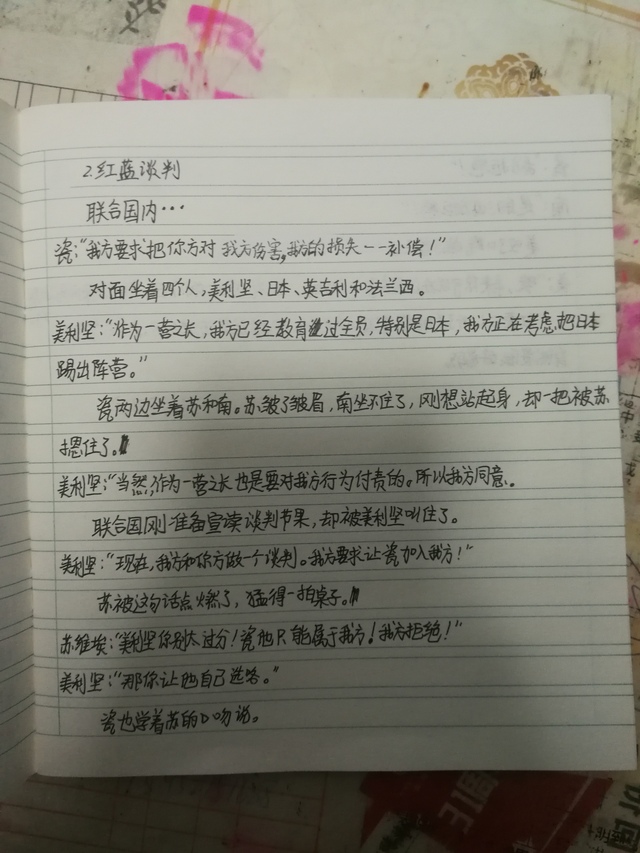 2.红蓝谈判
联合国内···
瓷:“我方要求把你方对我方伤害,我方的损失一一补偿!”
对面坐着四个人,美利坚、日本、英吉利和法兰西。
美利坚:“作为一营之长,我方已经教育过全员,特别是日本,我方正在考虑把日本
踢出阵营。”
瓷两边坐着苏和南。苏皱了皱眉,南坐不住了,刚想站起身,却一把被苏
摁住了。
美利坚:“当然,作为一营之长也是要对我方行为付责的。所以我方同意.
联合国刚准备宣读谈判节果,却被美利坚叫住了。
美利坚:“现在,我方和你方做一个谈判。我方要求让瓷加入我方!”
苏被这句话点燃了,猛得一拍桌子。
苏维埃:“美利坚你别太过分!瓷他只能属于我方!我方拒绝!”
美利坚:“那你让他自己选咯。”
瓷也学着苏的口吻说。